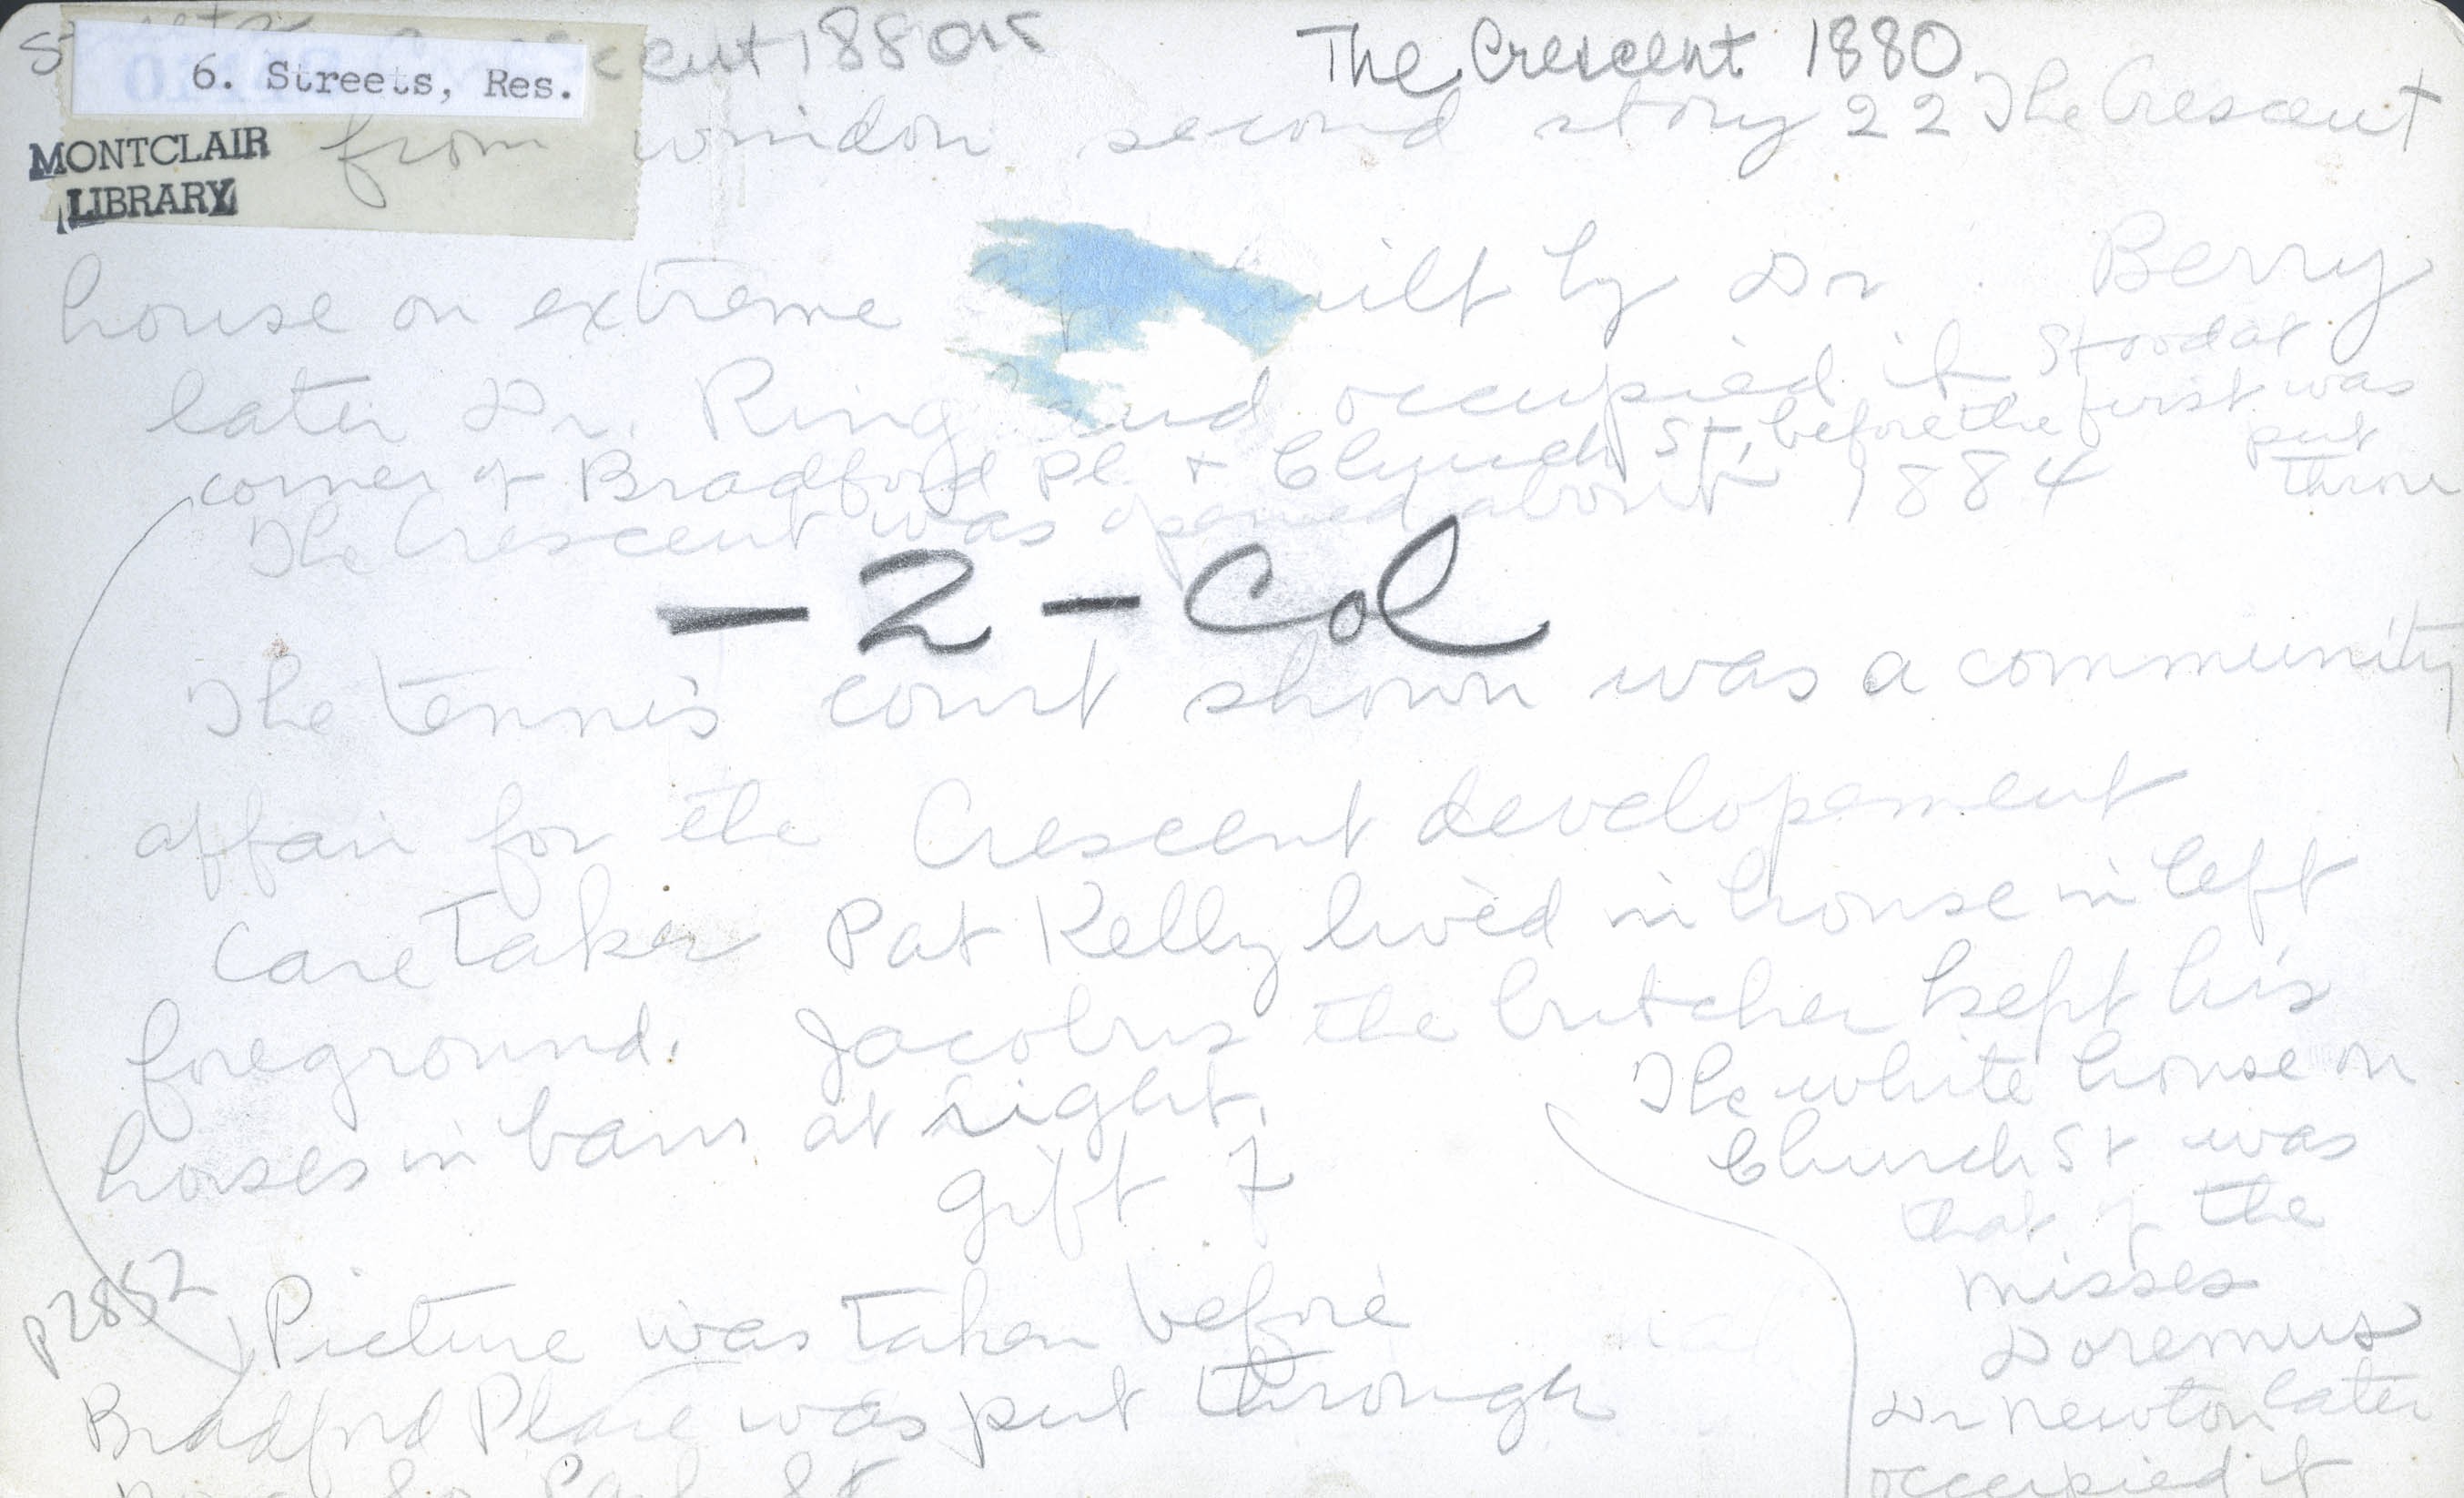 The Crescent 1880
6. Streets, Res.
MONTCLAIR
LIBRARY
from windon second story 22 The Crescent
house on extreme built by Dr. Berry
later Dr. Ring and occupied it stood at
corner of Bradford Pl + Church St, before the first was put throu
The Crescent was opened about 1884
-2-Col
The tennis court shown was a community
affair for the Crescent developement
Care Taker Pat Kelly lived in house in left
foreground. Jacobus the butcher kept his
horses in barn at right.
gift 7
The white house on
Church St was
that of the
Misses
Doremus
Dr Newton later
occupied it
P2852
Picture was taken before
Bradford Place was put through
So. Park St